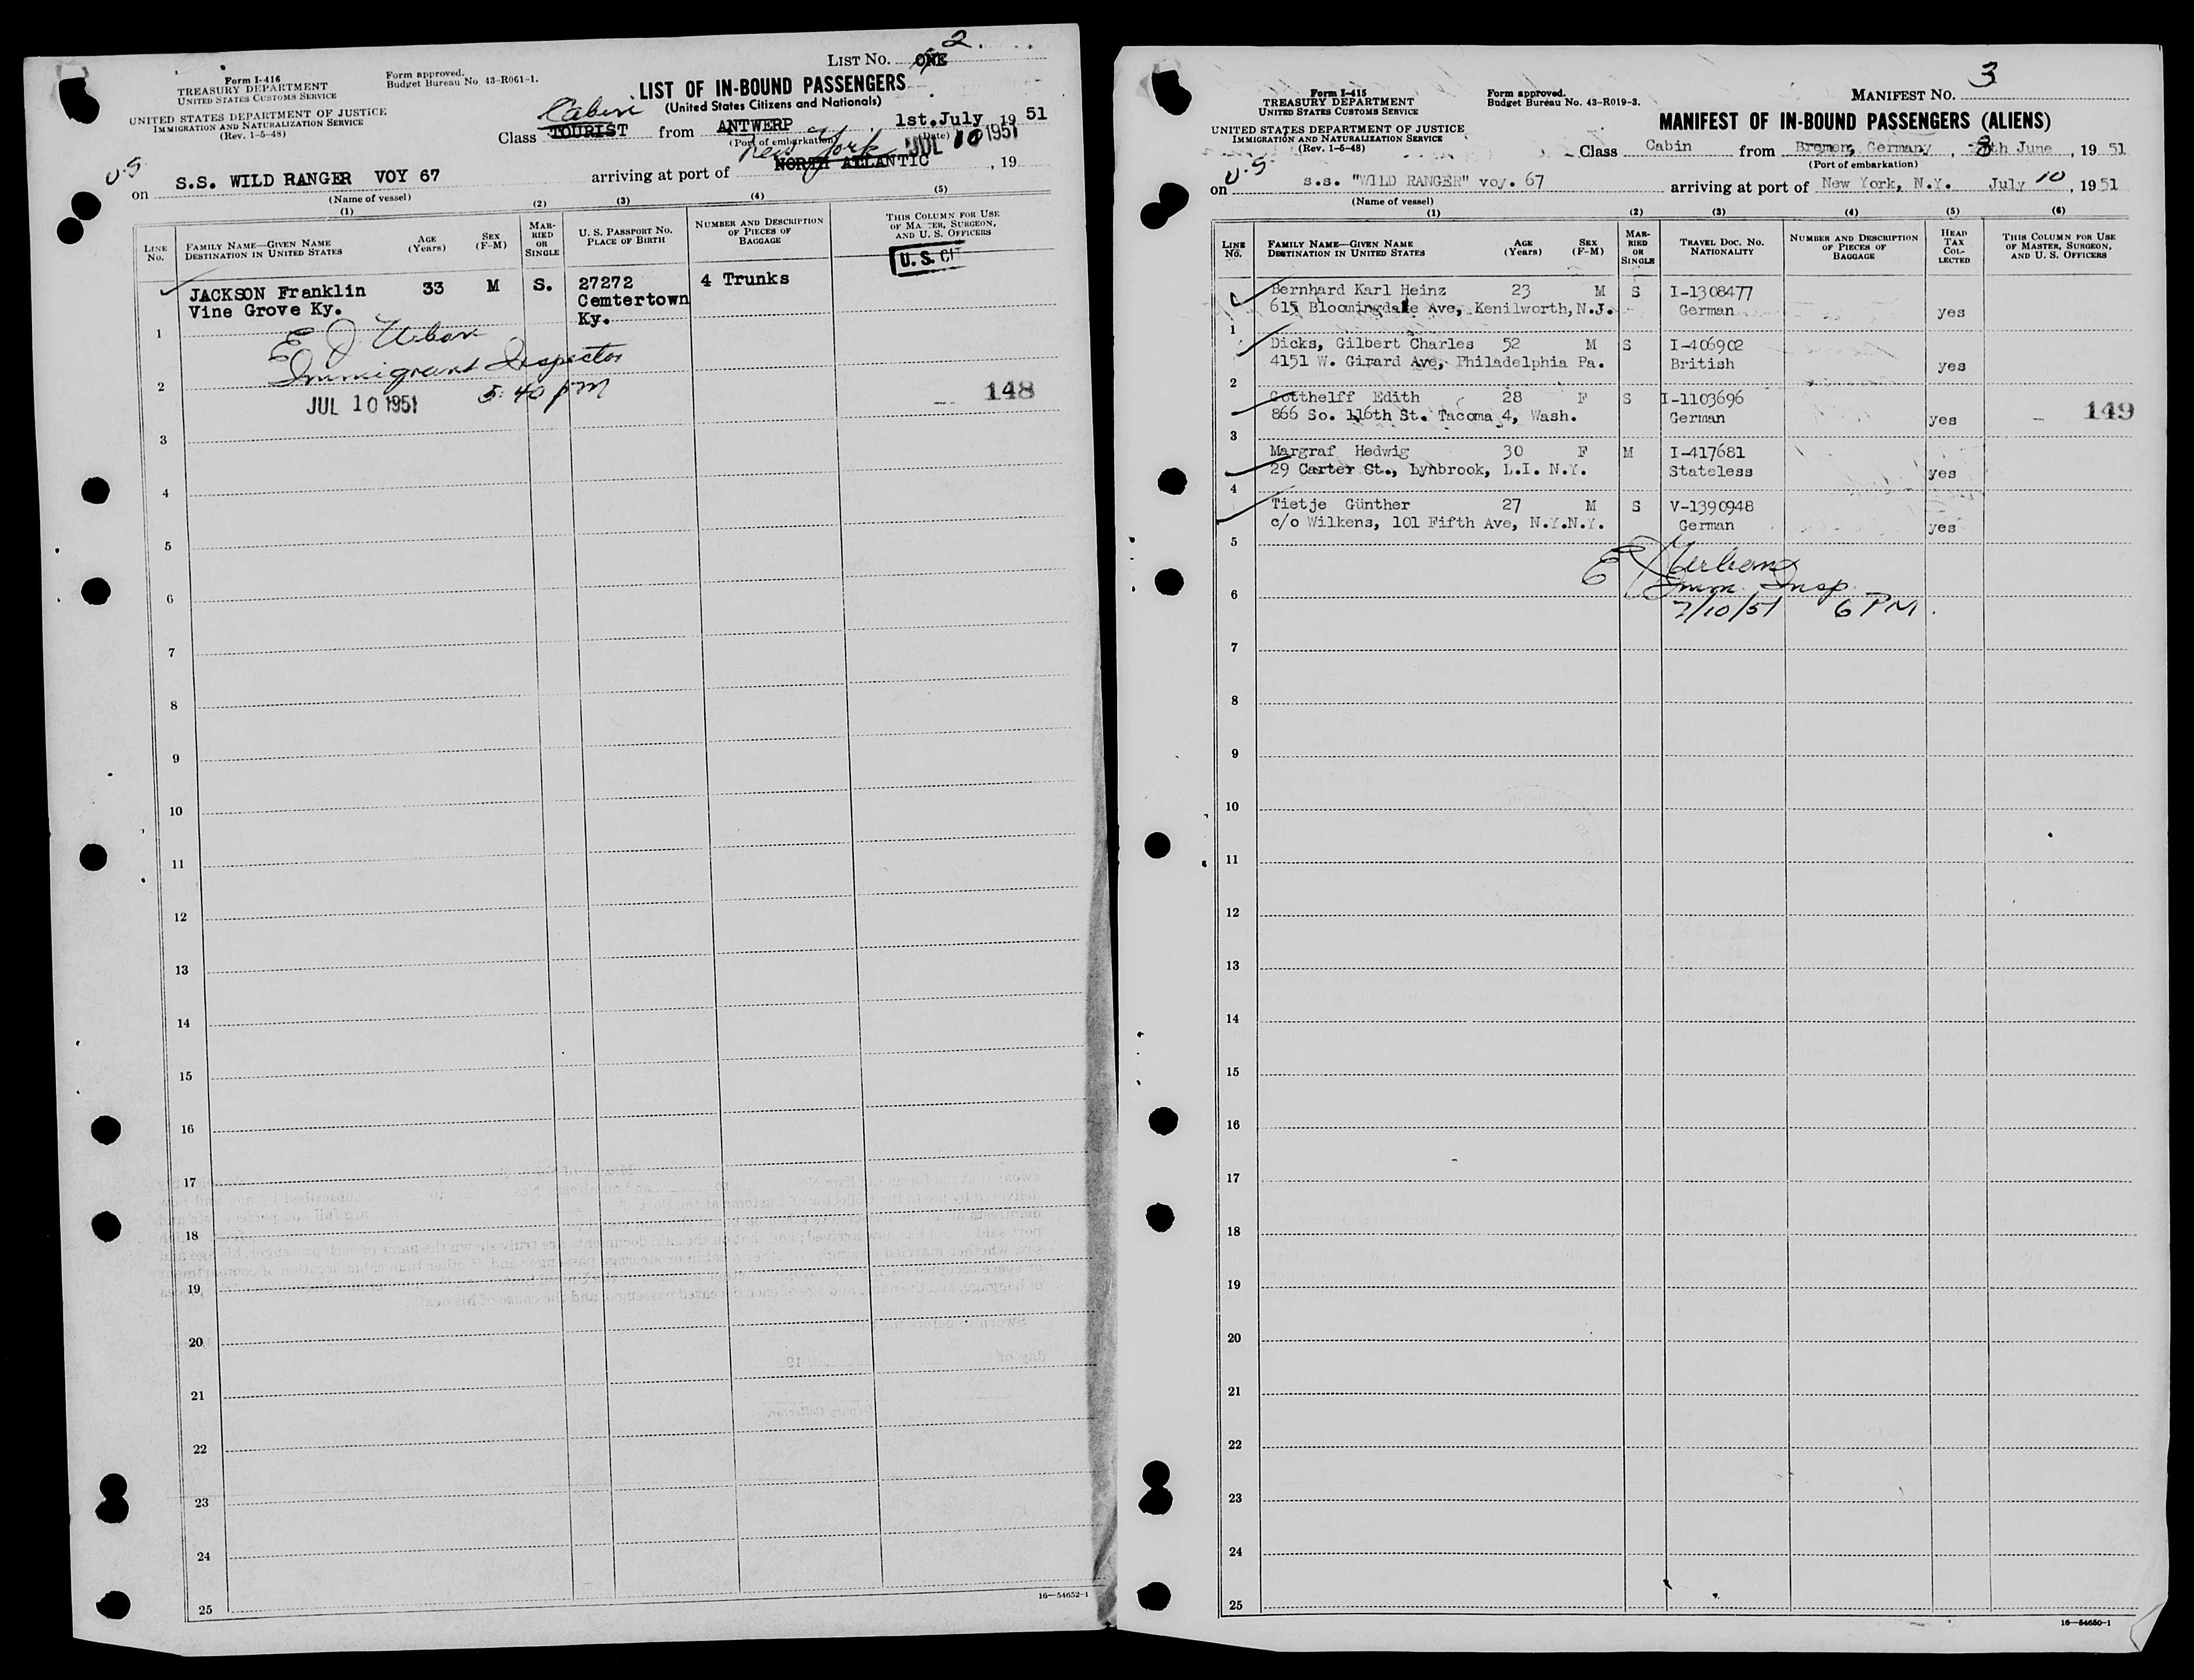 LIST NO. ONE 2.
Form I-416
TREASURY DEPARTMENT
UNITED STATES CUSTOMS SERVICE
Form approved.
Budget Bureau No 43-R061-1.
UNITED STATES DEPARTMENT OF JUSTICE
IMMIGRATION AND NATURALIZATION SERVICE
(Rev. 1-5-48)
LIST OF IN-BOUND PASSENGERS
(United States Citizens and Nationals)
Cabin
Class TOURIST from ANTWERP 1st.July, 19 51
(Port of embarkation) (Date)
New York JUL 10 1951
U.S.
on S.S. WILD RANGER VOY 67 arriving at port of NORTH ATLANTIC, 19
(Name of vessel)
(1) (2) (3) (4) (5)
LINE No. FAMILY NAME—GIVEN NAME DESTINATION IN UNITED STATES AGE (Years) SEX (F-M) MARRIED OR SINGLE U. S. PASSPORT NO. PLACE OF BIRTH NUMBER AND DESCRIPTION OF PIECES OF BAGGAGE THIS COLUMN FOR USE OF MASTER, SURGEON, AND U. S. OFFICERS
U. S. CIT
JACKSON Franklin 33 M S. 27272 4 Trunks
Vine Grove Ky. Cemtertown
Ky.
1
E J Urban
Immigrant Inspector
2
JUL 10 1951 5:40 PM
148
3
4
5
6
7
8
9
10
11
12
13
14
15
16
17
18
19
20
21
22
23
24
25
16—54652-1
3
MANIFEST NO.
Form I-415
TREASURY DEPARTMENT
UNITED STATES CUSTOMS SERVICE
Form approved.
Budget Bureau No. 43-R019-3.
UNITED STATES DEPARTMENT OF JUSTICE
IMMIGRATION AND NATURALIZATION SERVICE
(Rev. 1-5-48)
MANIFEST OF IN-BOUND PASSENGERS (ALIENS)
Class Cabin from Bremen, Germany, 8th June, 19 51
(Port of embarkation)
U.S.
on s.s. "WILD RANGER" voy. 67 arriving at port of New York, N.Y. July 10, 19 51
(Name of vessel)
(1) (2) (3) (4) (5) (6)
LINE No. FAMILY NAME—GIVEN NAME DESTINATION IN UNITED STATES AGE (Years) SEX (F-M) MARRIED OR SINGLE TRAVEL DOC. NO. NATIONALITY NUMBER AND DESCRIPTION OF PIECES OF BAGGAGE HEAD TAX COLLECTED THIS COLUMN FOR USE OF MASTER, SURGEON, AND U. S. OFFICERS
Bernhard Karl Heinz 23 M S I-1308477
615 Bloomingdale Ave, Kenilworth, N.J. German yes
1
Dicks, Gilbert Charles 52 M S I-406902
4151 W. Girard Ave, Philadelphia Pa. British yes
2
Gotthelff Edith 28 F S I-1103696
866 So. 116th St. Tacoma 4, Wash. German yes
149
3
Margraf Hedwig 30 F M I-417681
29 Carter Ct., Lynbrook, L.I. N.Y. Stateless yes
4
Tietje Günther 27 M S V-1390948
c/o Wilkens, 101 Fifth Ave, N.Y.N.Y. German yes
5
E J Urban
Imm. Insp.
6
7/10/51 6 PM.
7
8
9
10
11
12
13
14
15
16
17
18
19
20
21
22
23
24
25
16—54650-1